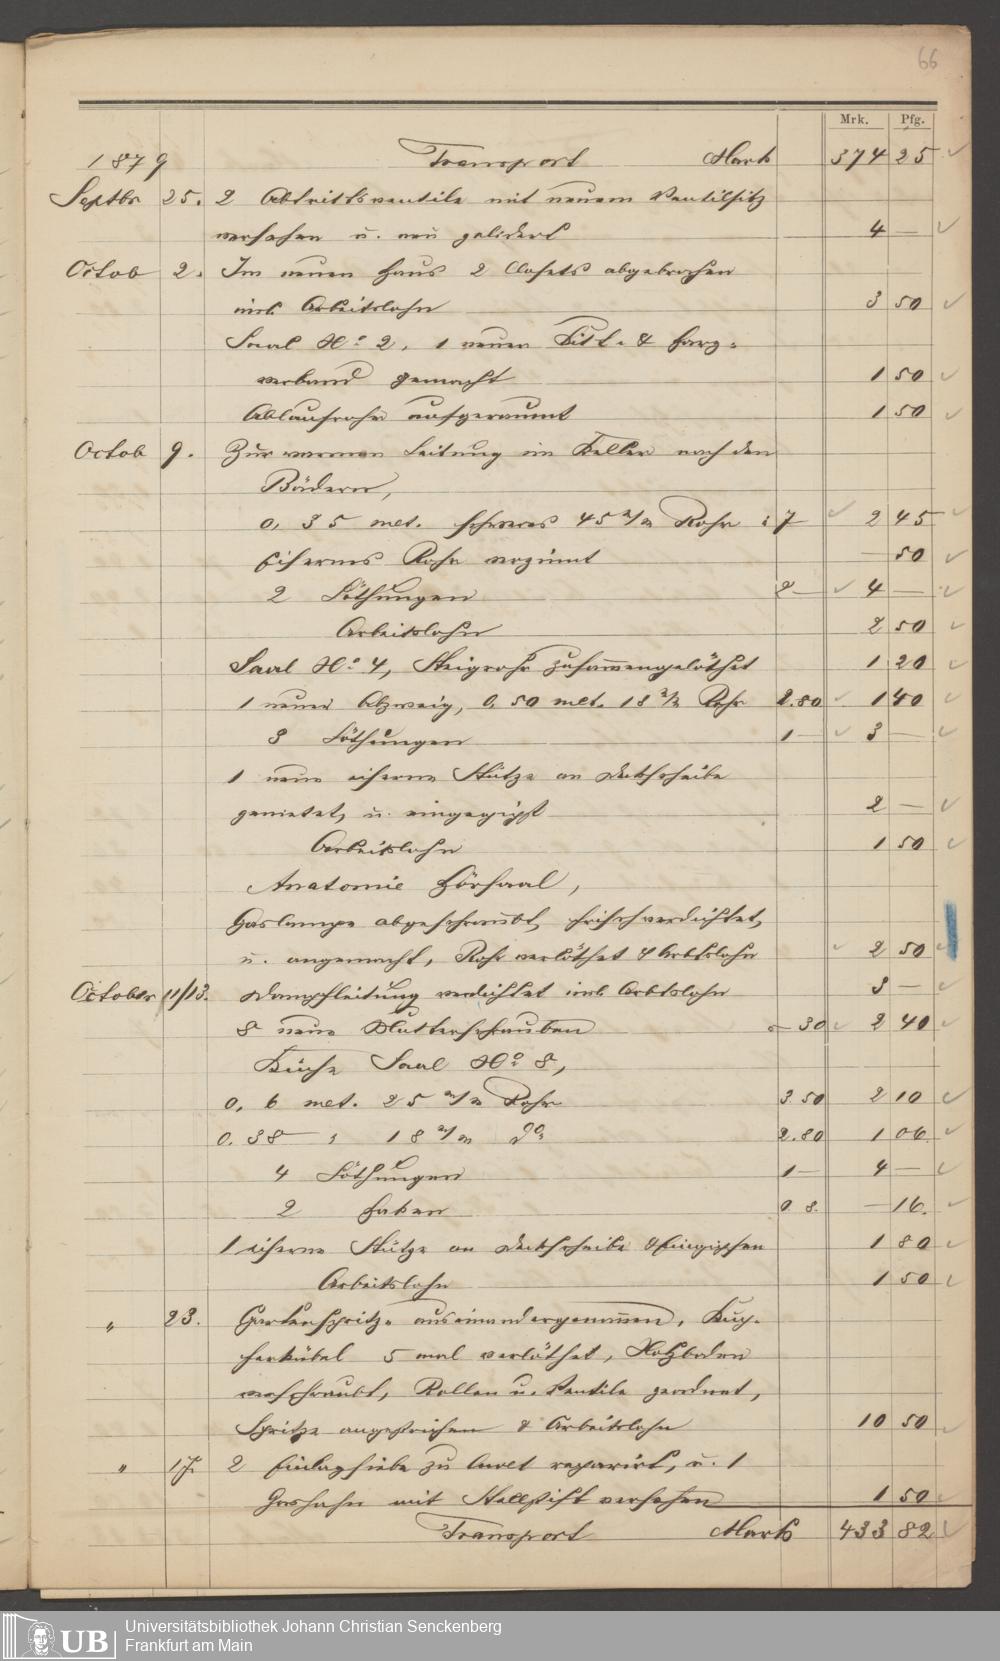 66
Mrk. Pfg.
1879 Transport Mark 374 25
Septbr 25. 2 Abtrittsventile mit neuem Ventilsitz
versehen u. neu gelidert 4 —
Octob 2. Im neuen Haus 2 Closets abgebrochen
incl. Arbeitslohn 3 50
Saal No. 2, 1 neuen Kitt- & Harz-
verband gemacht 1 50
Ablaufrohr aufgeraumt 1 50
Octob 9. Zur warmen Leitung im Keller nach den
Bädern,
0,35 met. schweres 45 m/m Rohr à 7 — 2 45
Eisernes Rohr verzinnt — 50
2 Löthungen 2 — 4 —
Arbeitslohn 2 50
Saal No. 4, Steigrohr zusammengelöthet 1 20
1 neuer Abzweig, 0,50 met. 18 m/m Rohr 2.80 1 40
3 Löthungen 1 — 3 —
1 neue eiserne Stütze an Deckscheibe
genietet, u. eingegipst 2 —
Arbeitslohn 1 50
Anatomie Hörsaal,
Gaslampe abgeschraubt, frisch verdichtet,
u. angemacht, Rohr verlöthet & Arbtslohn 2 50
Octobr 11/13. Dampfleitung verdichtet incl. Arbtslohn 3 —
8 neue Mutterschrauben — 30 2 40
Küche Saal No. 8,
0,6 met. 25 m/m Rohr 3.50 2 10
0.38 " 18 m/m do. 2.80 1 06.
4 Löthungen 1 — 4 —
2 Haken 0 8. — 16.
1 eiserne Stütze an Deckscheibe & Eingipsen 1 80
Arbeitslohn 1 50
" 23. Gartenspritze auseinandergenommen, Kup-
ferkübel 5 mal verlöthet, Holzboden
verschraubt, Rollen u. Ventile geordnet,
Spritze angestrichen & Arbeitslohn 10 50
" 17. 2 Einlagsiebe zu reparirt, u. 1
Gashahn mit Stellstift versehen 1 50
Transport Mark 433 82
UB Universitätsbibliothek Johann Christian Senckenberg
Frankfurt am Main